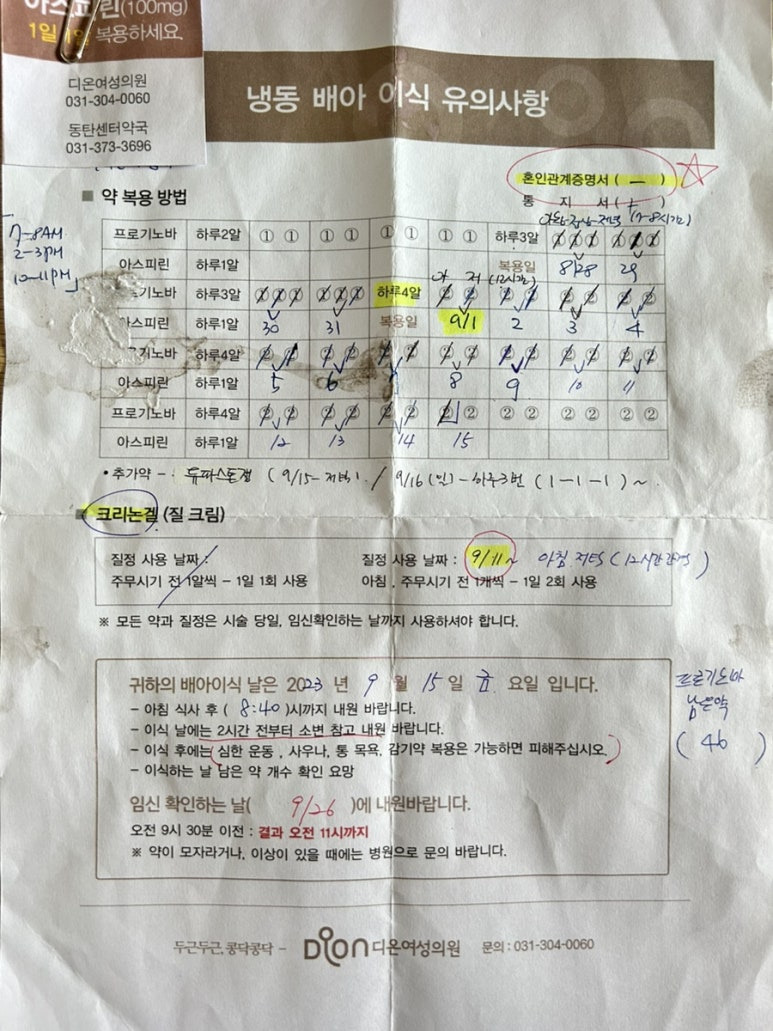 아스피린(100mg)
1일 1알 복용하세요.
디온여성의원
031-304-0060
동탄센터약국
031-373-3696
냉동 배아 이식 유의사항
혼인관계증명서 ( — )
통 지 서 ( )
■ 약 복용 방법
아침-점심-저녁 (7-8시간)
7-8AM
2-3PM
10-11PM
프로기노바 하루2알 ① ① ① ① ① ① ① ① 하루3알 ① ① ① ① ① ①
아스피린 하루1알 복용일 8/28 29
아 저 (12시간)
프로기노바 하루3알 ① ① ① ① ① ① 하루4알 ② ② ② ② ② ② ② ②
아스피린 하루1알 30 31 복용일 9/1 2 3 4
프로기노바 하루4알 ② ② ② ② ② ② ② ② ② ② ② ② ② ②
아스피린 하루1알 5 6 7 8 9 10 11
프로기노바 하루4알 ② ② ② ② ② ② ② ② ② ② ② ② ② ②
아스피린 하루1알 12 13 14 15
• 추가약 - : 듀파스톤정 ( 9/15 - 저녁1 / 9/16(일) - 하루3번 (1-1-1) ~
■ 크리논겔 (질 크림)
질정 사용 날짜 :
주무시기 전 1알씩 – 1일 1회 사용
질정 사용 날짜 : 9/11 ~ 아침 저녁 (12시간 간격)
아침, 주무시기 전 1개씩 – 1일 2회 사용
※ 모든 약과 질정은 시술 당일, 임신확인하는 날까지 사용하셔야 합니다.
귀하의 배아이식 날은 2023 년 9 월 15 일 금 요일 입니다.
- 아침 식사 후 ( 8:40 )시까지 내원 바랍니다.
- 이식 날에는 2시간 전부터 소변 참고 내원 바랍니다.
- 이식 후에는 심한 운동, 사우나, 통 목욕, 감기약 복용은 가능하면 피해주십시오.
- 이식하는 날 남은 약 개수 확인 요망
프로기노바
남은약
( 46 )
임신 확인하는 날( 9/26 )에 내원바랍니다.
오전 9시 30분 이전 : 결과 오전 11시까지
※ 약이 모자라거나, 이상이 있을 때에는 병원으로 문의 바랍니다.
두근두근, 콩닥콩닥 – Dion 디온여성의원 문의 : 031-304-0060